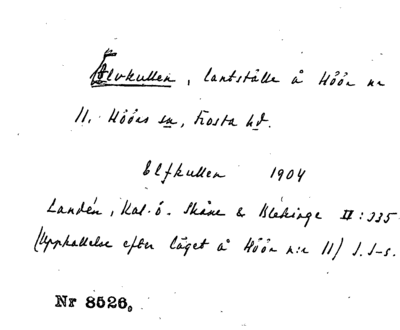 Elvkullen, lantställe å Höör nr
11. Höörs sn, Frosta hd.
Elfkullen 1904
Landén, Kal. ö. Skåne & Blekinge II: 335.
(Upphallelse efter läget å Höör n:r 11) J.S-s.
Nr 8526.